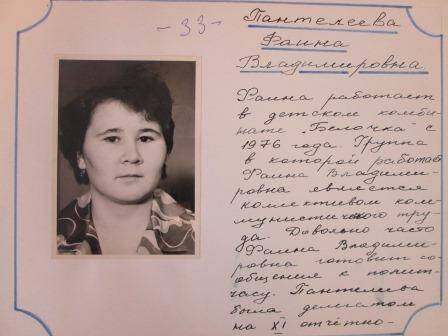 - 33 -
Пантелеева
Фаина
Владимировна
Фаина работает
в детском комби-
нате „Белочка" с
1976 года. Группа
в которой работает
Фаина Владими-
ровна является
коллективом ком-
мунистического тру-
да. Довольно часто
Фаина Владими-
ровна готовит со-
общения к полит-
часу. Пантелеева
была делегатом
на XI отчётно-